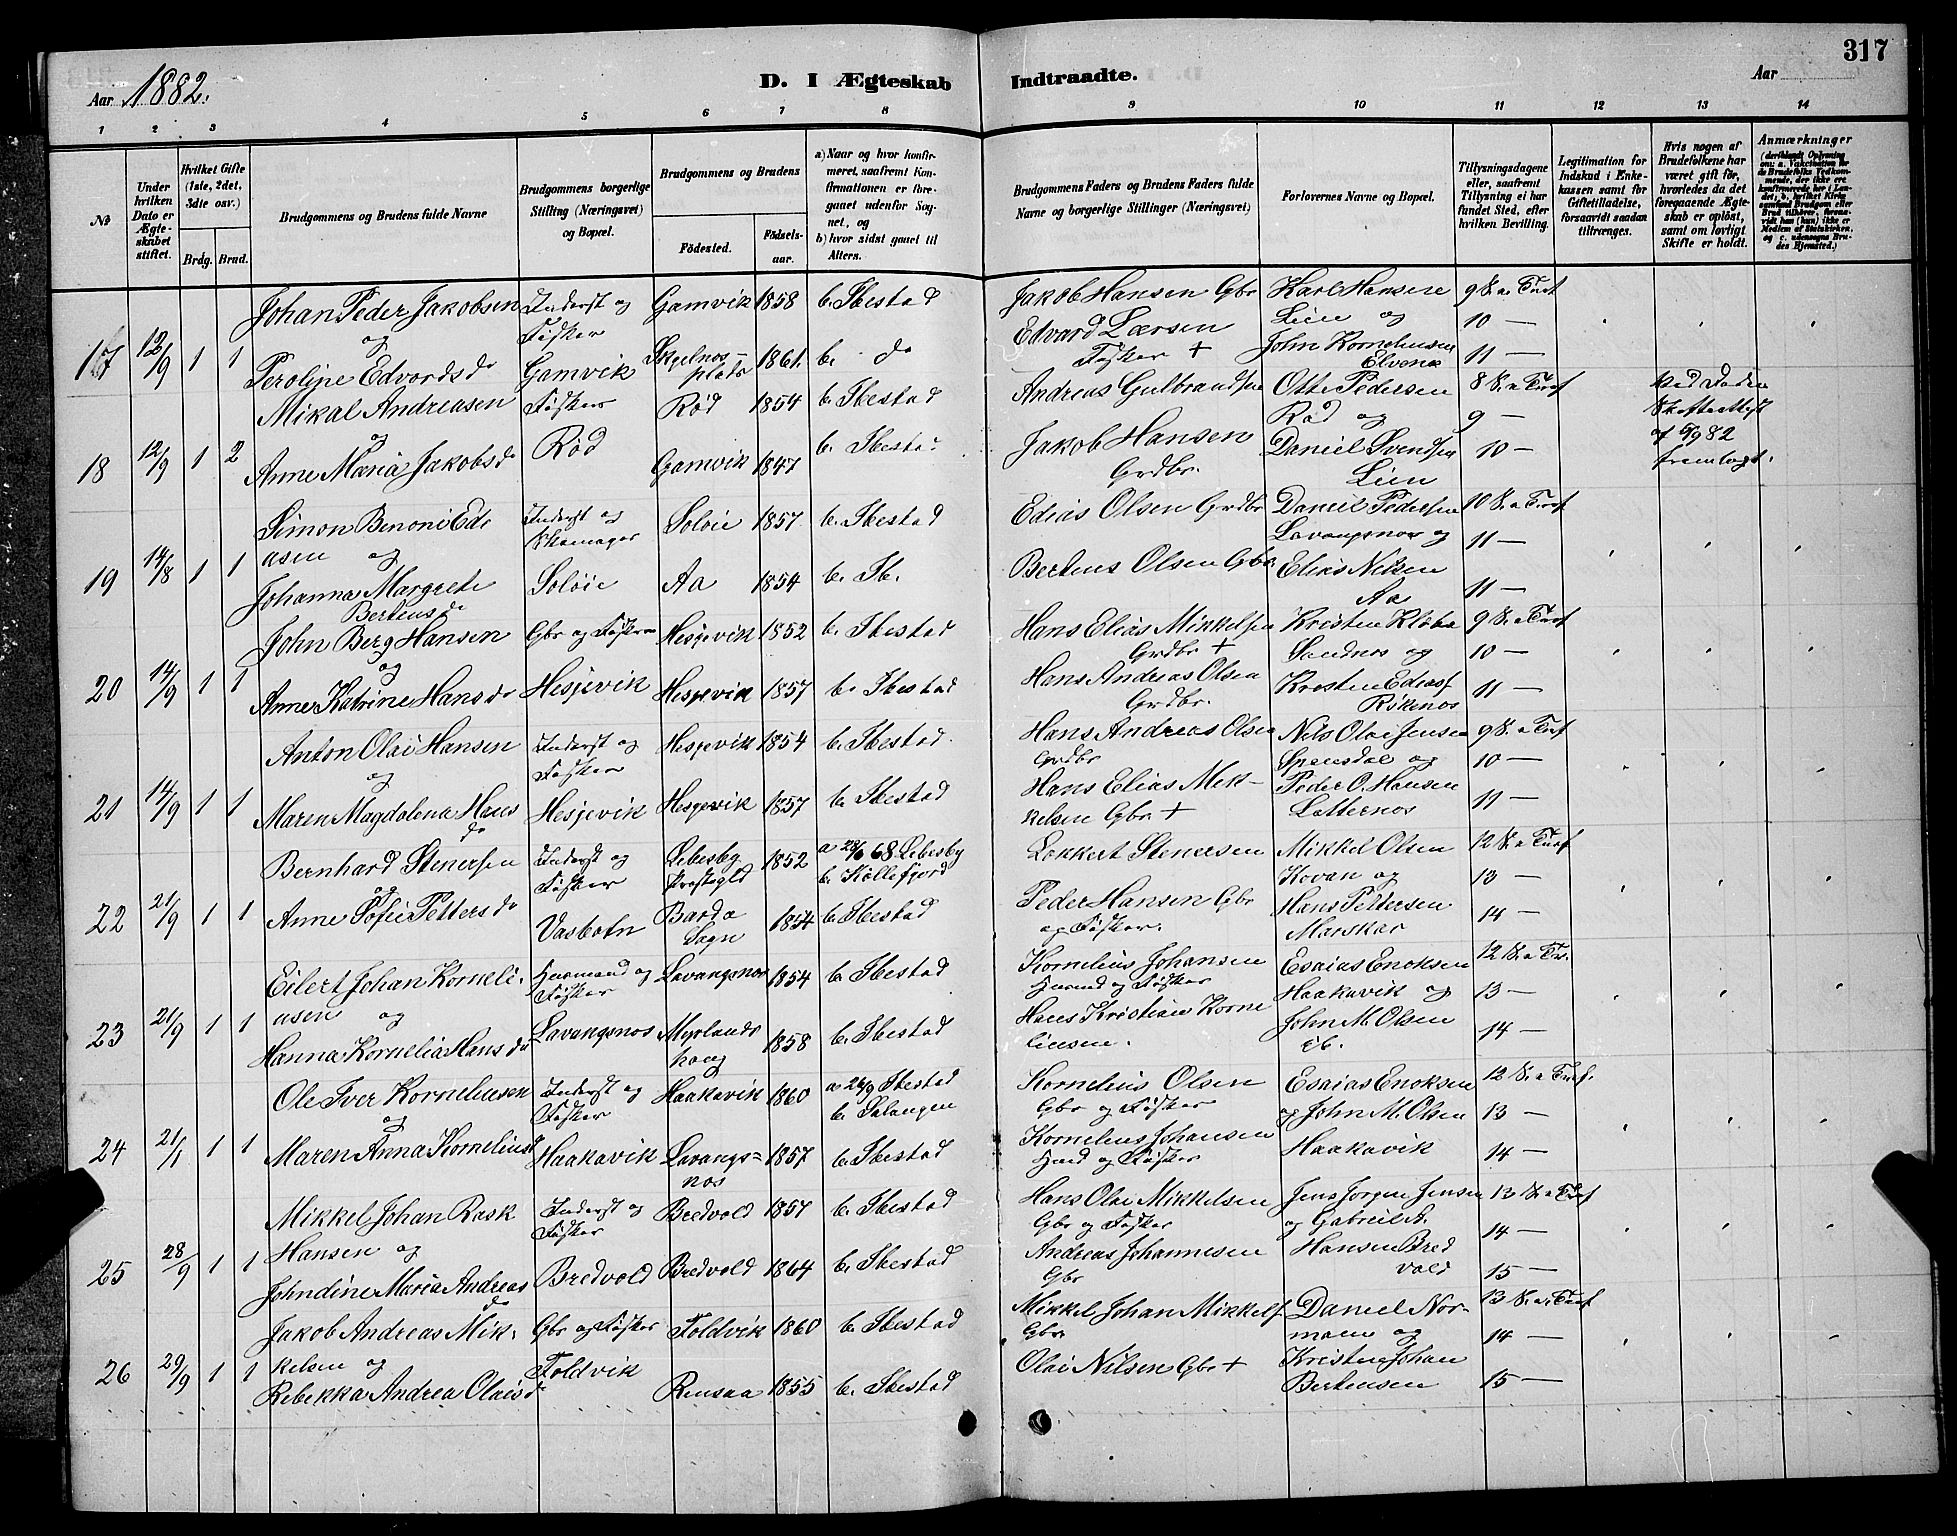 317
Aar 1882.
D. I Ægteskab Indtraadte.
Aar
1 2 3 4 5 6 7 8 9 10 11 12 13 14
No
Under hvilken Dato er Ægteskabet stiftet.
Hvilket Gifte (1ste, 2det, 3dte osv.)
Brdg. Brud.
Brudgommens og Brudens fulde Navne
Brudgommens borgerlige Stilling (Næringsvei) og Bopæl.
Brudgommens og Brudens
Fødested. Fødselsaar.
a) Naar og hvor konfirmeret, saafremt Konfirmationen er foregaaet udenfor Sognet, og
b) hvor sidst gaaet til Alters.
Brudgommens Faders og Brudens Faders fulde Navne og borgerlige Stillinger (Næringsvei)
Forlovernes Navne og Bopæl.
Tillysningsdagene eller, saafremt Tillysning ei har fundet Sted, efter hvilken Bevilling.
Legitimation for Indskud i Enkekassen samt for Giftetilladelse, forsaavidt saadan tiltrænges.
Hvis nogen af Brudefolkene har været gift før, hvorledes da det foregaaende Ægteskab er opløst, samt om lovligt Skifte er holdt.
Anmærkninger
17 12/9 1 1
Johan Peder Jakobsen Inderst og Gamvik 1858 b. Ibestad Jakob Hansen Gbr Karl Hansen 9 S. e. Tref
og Fisker Edvard Larsen Lien og 10 —
Peroline Edvardsdr Gamvik Skjelnesplads 1861 b. do Fisker + John Korneliusen Elvenes 11 —
18 12/9 1 2
Mikal Andreasen Fisker Rød 1854 b. Ibestad Andreas Gulbrandsen Otte Pedersen 8 S. e. Tref
og Rød Rød og 9 —
Anne Maria Jakobsdr Gamvik 1847 b. Ibestad Jakob Hansen Daniel Svendsen 10 —
Grdbr. Lien
Skifteattest af 5/9 82 fremlagt.
19 14/8 1 1
Simon Benoni Ediasen og Inderst og Skomager Soløie 1857 b. Ibestad Edias Olsen Grdbr Daniel Pedersen 10 S. e. Tref
Lavangsnes og 11 —
Johanna Margrete Bertensdr Soløie Aa 1854 b. Ib. Bertens Olsen Gbr Elias Nilsen Aa 11 —
20 14/9 1 1
John Berg Hansen Gbr og Fisker Hesjevik 1852 b. Ibestad Hans Elias Mikkelsen Kristen Klæbo 9 S. e. Tref
og Grdbr + Sandnes og 10 —
Anne Katrine Hansdr Hesjevik Hesjevik 1857 b. Ibestad Hans Andreas Olsen Kristen Ediass 11 —
Grdbr. Røkenes
21 14/9 1 1
Anton Olai Hansen Inderst og Hesjevik 1854 b. Ibestad Hans Andreas Olsen Nils Olai Jensen 9 S. e. Tref
og Fisker Grdbr Spansdal og 10 —
Maren Magdalena Hansdr Hesjevik Hesjevik 1857 b. Ibestad Hans Elias Mikkelsen Gbr + Peder O. Hansen 11 —
22 21/9 1 1
Bernhard Stenersen Inderst og Lebesby 1852 a 68 Lebesby Lokkert Stenersen Mikkel Olsen 12 S. e. Tref
og Fisker Prestegld b. Kjøllefjord Kovan og 13 —
Anne Sofie Pettersdr Vasbotn Bardo Sogn 1854 b. Ibestad Peder Hansen Gbr Hans Pettersen 14 —
og Fisker.
23 21/9 1 1
Eilert Johan Korneliusen og Husmand og Fisker Lavangsnes 1854 b. Ibestad Kornelius Johansen Esaias Enoksen 12 S. e. Tr.
Husmd og Fisker Haakavik og 13 —
Hanna Kornelia Hansdr Lavangsnes Myrlandshaug 1858 b. Ibestad Hans Kristian Korneliusen. John M. Olsen ib. 14 —
24 21/1 1 1
Ole Iver Korneliusen Inderst og Haakavik 1860 a 24/9 Ibestad Kornelius Olsen Esaias Enoksen 12 S. e. Tref.
og Fisker b. Salangen Gbr og Fisker og John M. Olsen 13 —
Maren Anna Korneliusdr Haakavik Lavangsnes 1857 b. Ibestad Kornelius Johansen Haakavik 14 —
Husmd og Fisker
25 28/9 1 1
Mikkel Johan Rask Inderst og Bredvold 1857 b. Ibestad Hans Olai Mikkelsen Jens Jørgen Jensen 13 S. e. Tref
Hansen og Fisker Gbr og Fisker og Gabriel A. 14 —
Johndine Maria Andreasdr Bredvold Bredvold 1864 b. Ibestad Andreas Johannesen Hansen Bredvold 15 —
Gbr
26 29/9 1 1
Jakob Andreas Mikkelsen og Gbr og Fisker Foldvik 1860 b. Ibestad Mikkel Johan Mikkels Daniel Normann og 13 S. e. Tref
Foldvik Gbr 14 —
Rebekka Andrea Olaisdr Rensaa 1855 b. Ibestad Olai Nilsen Gbr + Kristen Johan Bertensen 15 —